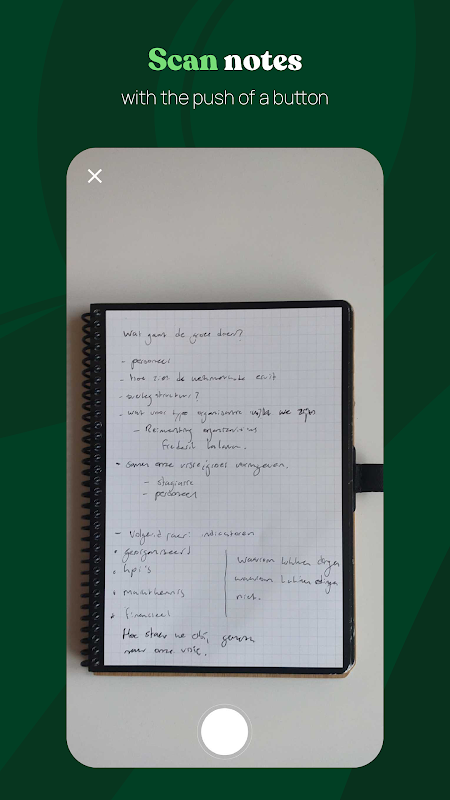 Scan notes
with the push of a button
Wat gaat de groei doen?
- personeel
- Hoe zien de eruit
- overlegstructuur?
- wat voor type organisatie we zijn
- Reinventing organizations
Frederic
- samen onze visie, groei vormgeven.
- stagiaire
- personeel
- Volgend jaar: indicatoren
georganiseerd
kpi's
financieel
waarom lukken dingen
waarom lukken dingen
niet.
Hoe staan we
naar onze visie.